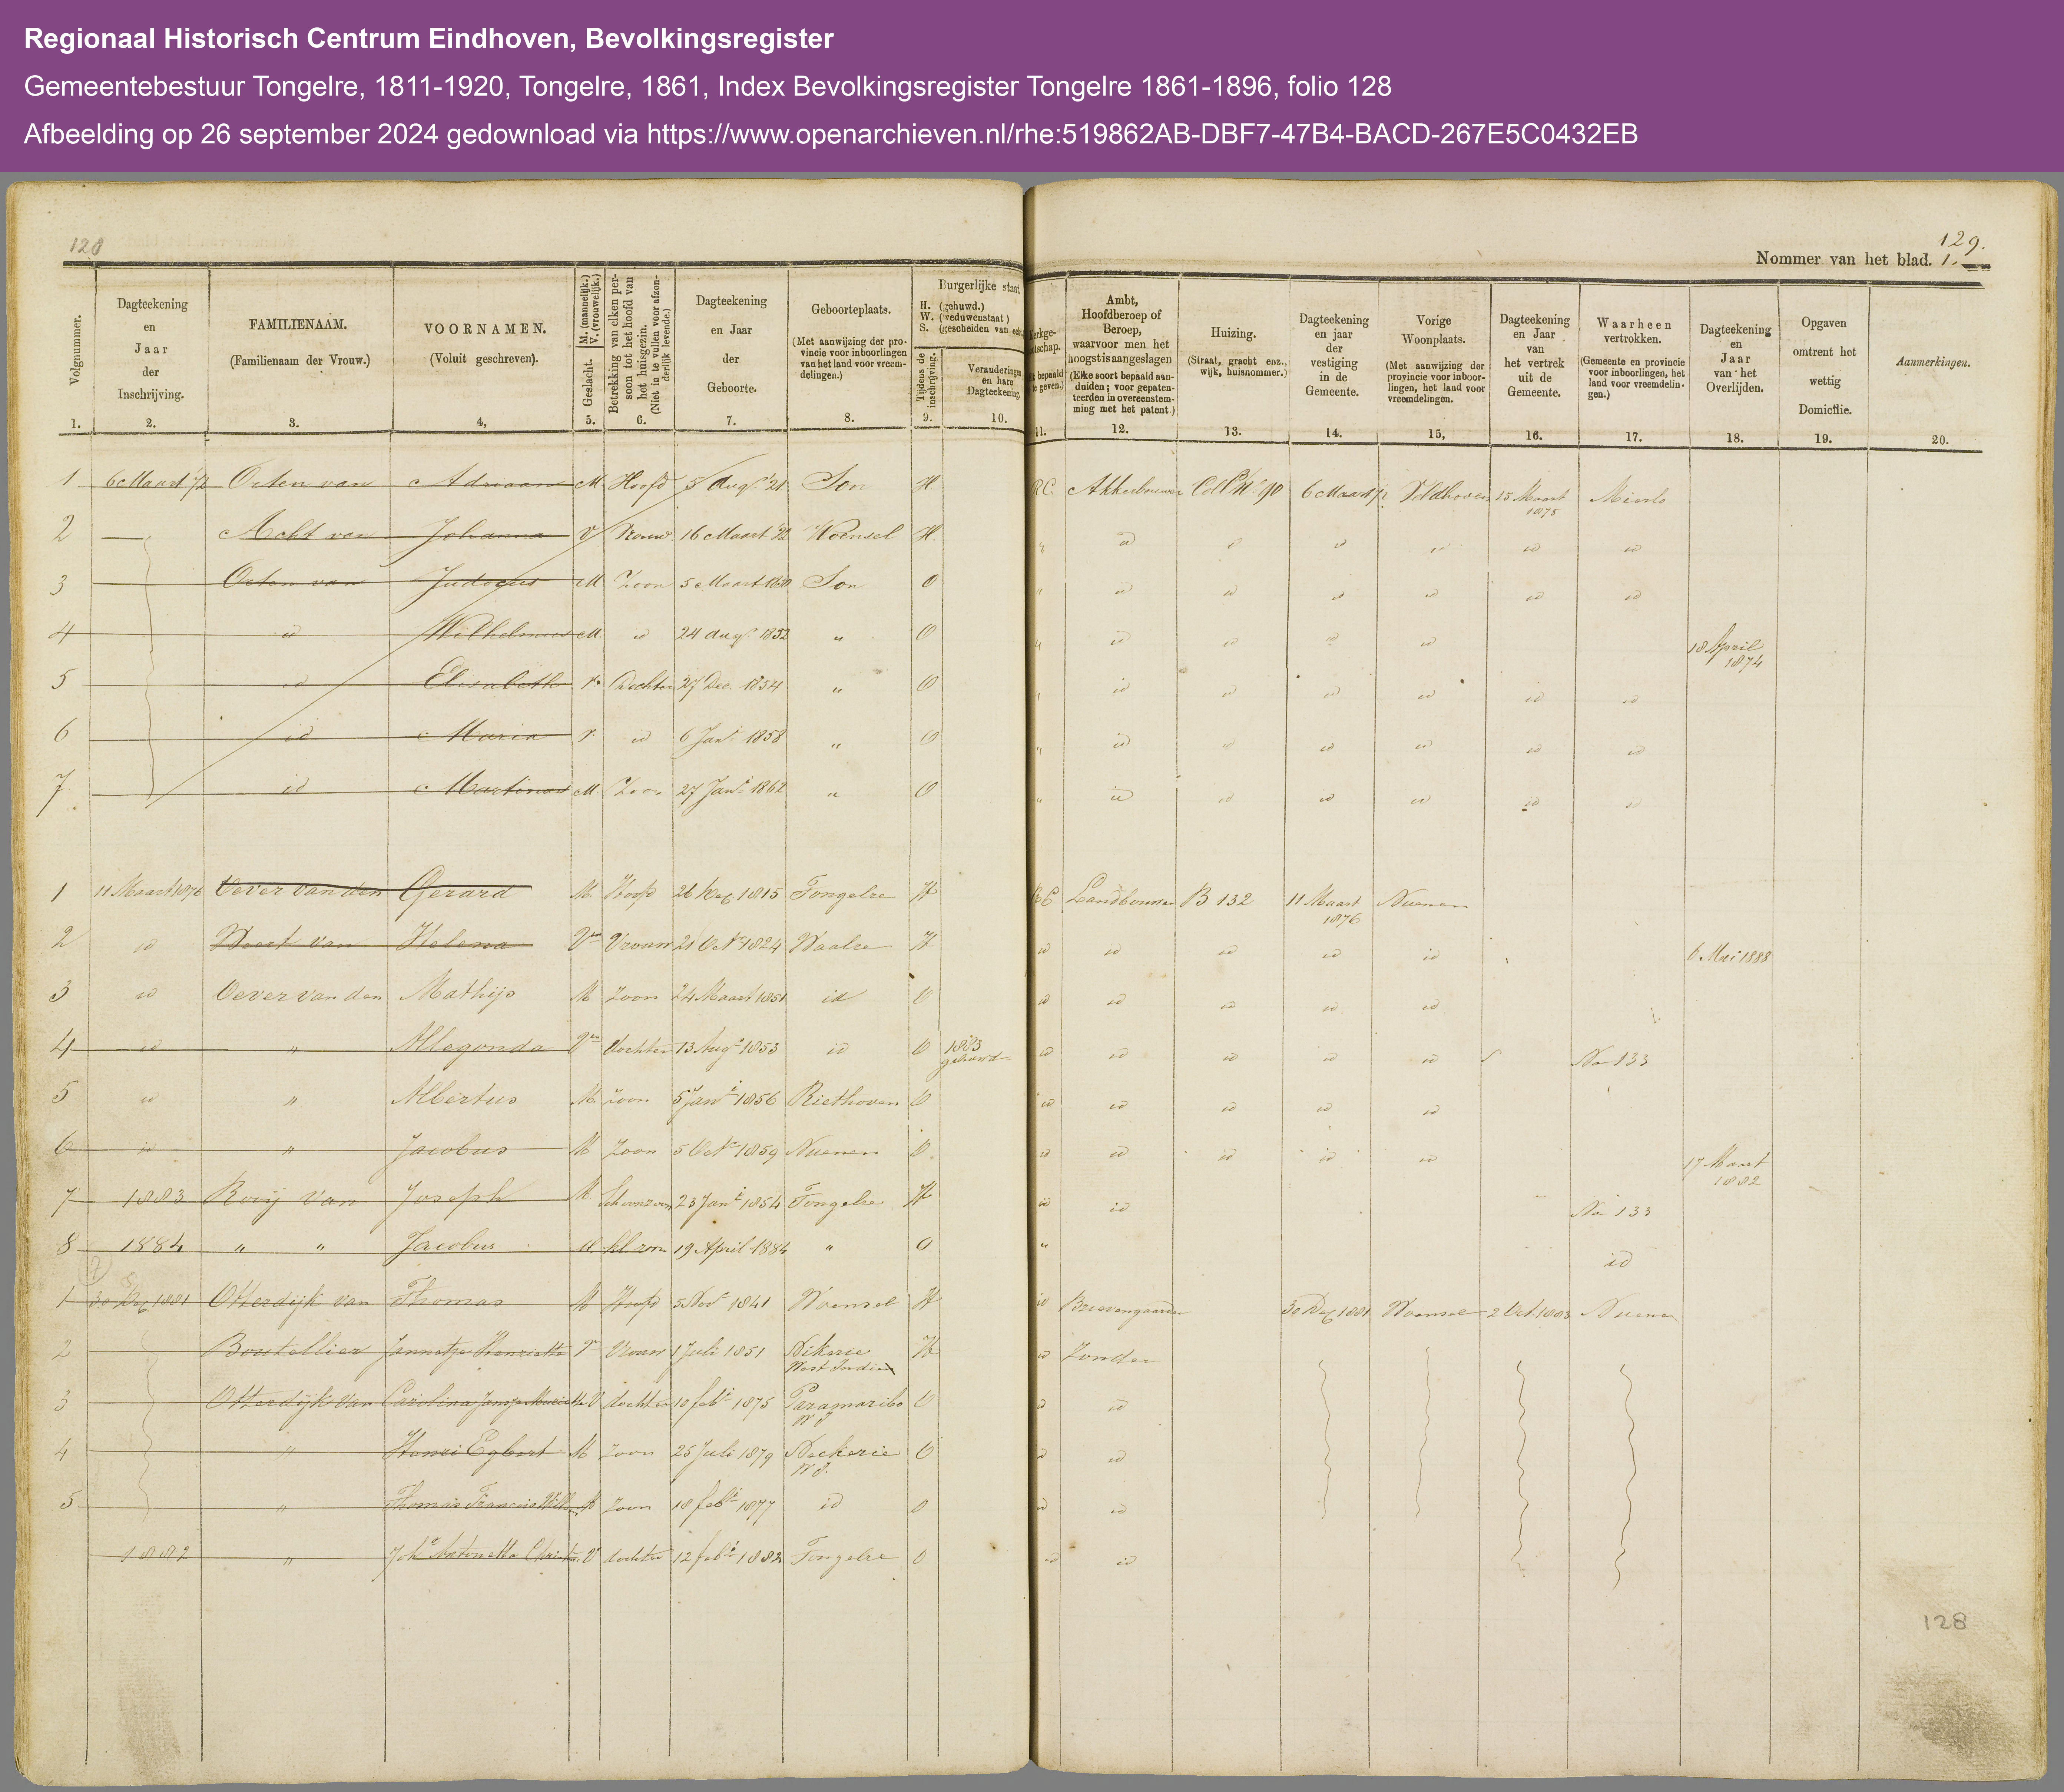 Regionaal Historisch Centrum Eindhoven, Bevolkingsregister
Gemeentebestuur Tongelre, 1811-1920, Tongelre, 1861, Index Bevolkingsregister Tongelre 1861-1896, folio 128
Afbeelding op 26 september 2024 gedownload via https://www.openarchieven.nl/rhe:519862AB-DBF7-47B4-BACD-267E5C0432EB
128
129.
Nommer van het blad. 1.
Volgnummer. 1.
Dagteekening en Jaar der Inschrijving. 2.
FAMILIENAAM. (Familienaam der Vrouw.) 3.
VOORNAMEN. (Voluit geschreven). 4,
Geslacht. M. (mannelijk.) V. (vrouwelijk.) 5.
Betrekking van elken persoon tot het hoofd van het huisgezin. (Niet in te vullen voor afzonderlijk levende.) 6.
Dagteekening en Jaar der Geboorte. 7.
Geboorteplaats. (Met aanwijzing der provincie voor inboorlingen van het land voor vreemdelingen.) 8.
Burgerlijke staat.
H. (gehuwd.)
W. (weduwenstaat)
S. (gescheiden van
Tijdens de inschrijving. 9.
Veranderingen en hare Dagteekening. 10.
11.
Ambt, Hoofdberoep of Beroep, waarvoor men het hoogst is aangeslagen (Elke soort bepaald aanduiden; voor gepatenteerden in overeenstemming met het patent.) 12.
Huizing. (Straat, gracht enz., wijk, huisnommer.) 13.
Dagteekening en jaar der vestiging in de Gemeente. 14.
Vorige Woonplaats. (Met aanwijzing der provincie voor inboorlingen, het land voor vreemdelingen. 15,
Dagteekening en Jaar van het vertrek uit de Gemeente. 16.
Waarheen vertrokken. (Gemeente en provincie voor inboorlingen, het land voor vreemdelingen.) 17.
Dagteekening en Jaar van het Overlijden. 18.
Opgaven omtrent het wettig Domicilie. 19.
Aanmerkingen. 20.
1 6 Maart 72 Octen van Adriaan M Hoofd 5 Augs 21 Son H RC. Akkerbouwer 90 6 Maart 72 Veldhoven 15 Maart 1875 Mierlo
2 Acht van Johanna V Vrouw 16 Maart Woensel H " id id id id id id
3 Octen van Judocus M Zoon 5 Maart Son O " id id id id id id
4 id Wilhelmus M id 24 Augs 1852 " O " id id id id 18 April 1874
5 id Elisabeth V. Dochter 27 Dec. 1854 " O " id id id id id id
6 id Maria V. id 6 Jani 1858 " O " id id id id id id
7 id Martinus M Zoon 27 Jani 1862 " O " id id id id id id
1 11 Maart 1876 Oever van den Gerard M. Hoofd 26 1815 Tongelre H RC Landbouwer B 132 11 Maart 1876 Nuenen
2 id van Helena Vr Vrouw 21 Oct 1824 Waalre H id id id id id 6 Mei 1888
3 id Oever van den Mathijs M Zoon 24 Maart 1851 id O id id id id id
4 id " Allegonda Vr dochter 13 Augs 1853 id O 1883 gehuwd id id id id id No 133
5 id " Albertus M Zoon 5 Jani 1856 Riethoven O id id id id id
6 id " Jacobus M Zoon 5 Oct 1859 Nuenen O. id id id id id 17 Maart 1882
7 1883 Rooij van Joseph M Schoonzoon 23 Jani 1854 Tongelre H id id No 133
8 1884 " " Jacobus M kl zoon 19 April 1884 " O " id
1 30 Dec 1881 Otterdijk van Thomas M Hoofd 5 Nov 1841 Woensel H id Brievengaarder 30 Dec 1881 Woensel 2 Oct 1883 Nuenen
2 Boutellier Jannetje Henriette Vr Vrouw 1 Juli 1851 Nikerie West Indien H id Zonder
3 Otterdijk van Carolina V dochter 10 febi 1875 Paramaribo W I O id id
4 " Henri Egbert M Zoon 25 Juli 1879 Neckerie W I. O id id
5 " Thomas Francois M Zoon 18 febi 1877 id O id id
1882 " Antonetta V dochter 12 febi 1882 Tongelre O id id
128